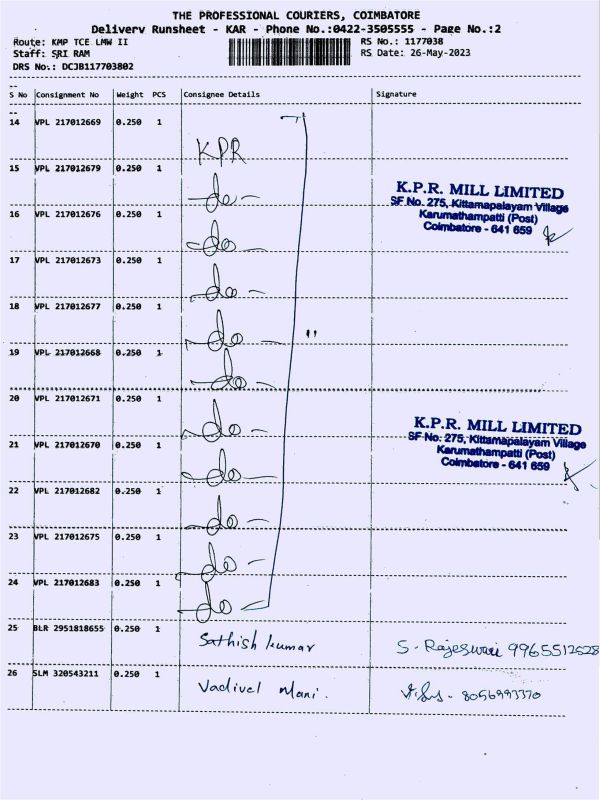 THE PROFESSIONAL COURIERS, COIMBATORE
Delivery Runsheet - KAR - Phone No.:0422-3505555 - Page No.:2
Route: KMP TCE LMW II
RS No.: 1177038
Staff: SRI RAM
RS Date: 26-May-2023
DRS No.: DCJB117703802
S No Consignment No Weight PCS Consignee Details Signature
14 VPL 217012669 0.250 1 KPR
15 VPL 217012679 0.250 1 -do-
K.P.R. MILL LIMITED
SF No. 275, Kittamapalayam Village
Karumathampatti (Post)
Coimbatore - 641 659
16 VPL 217012676 0.250 1 -do-
17 VPL 217012673 0.250 1 -do-
18 VPL 217012677 0.250 1 -do- "
19 VPL 217012668 0.250 1 -do-
20 VPL 217012671 0.250 1 -do-
K.P.R. MILL LIMITED
SF No. 275, Kittamapalayam Village
Karumathampatti (Post)
Coimbatore - 641 659
21 VPL 217012670 0.250 1 -do-
22 VPL 217012682 0.250 1 -do-
23 VPL 217012675 0.250 1 -do-
24 VPL 217012683 0.250 1 -do-
25 BLR 2951818655 0.250 1 Sathish kumar S. Rajeswari 9965512528
26 SLM 320543211 0.250 1 Vadivel Mani. 8056993370